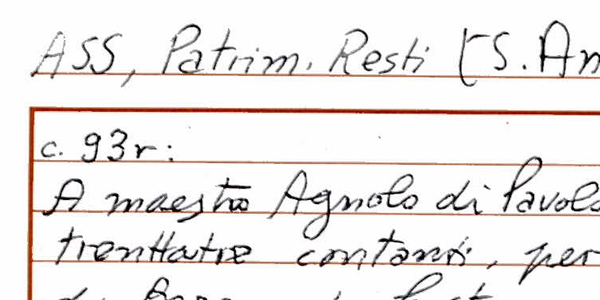 ASS, Patrim. Resti [S. An
c. 93r:
A maestro Agnolo di Pavolo
trenttatre contanti, per